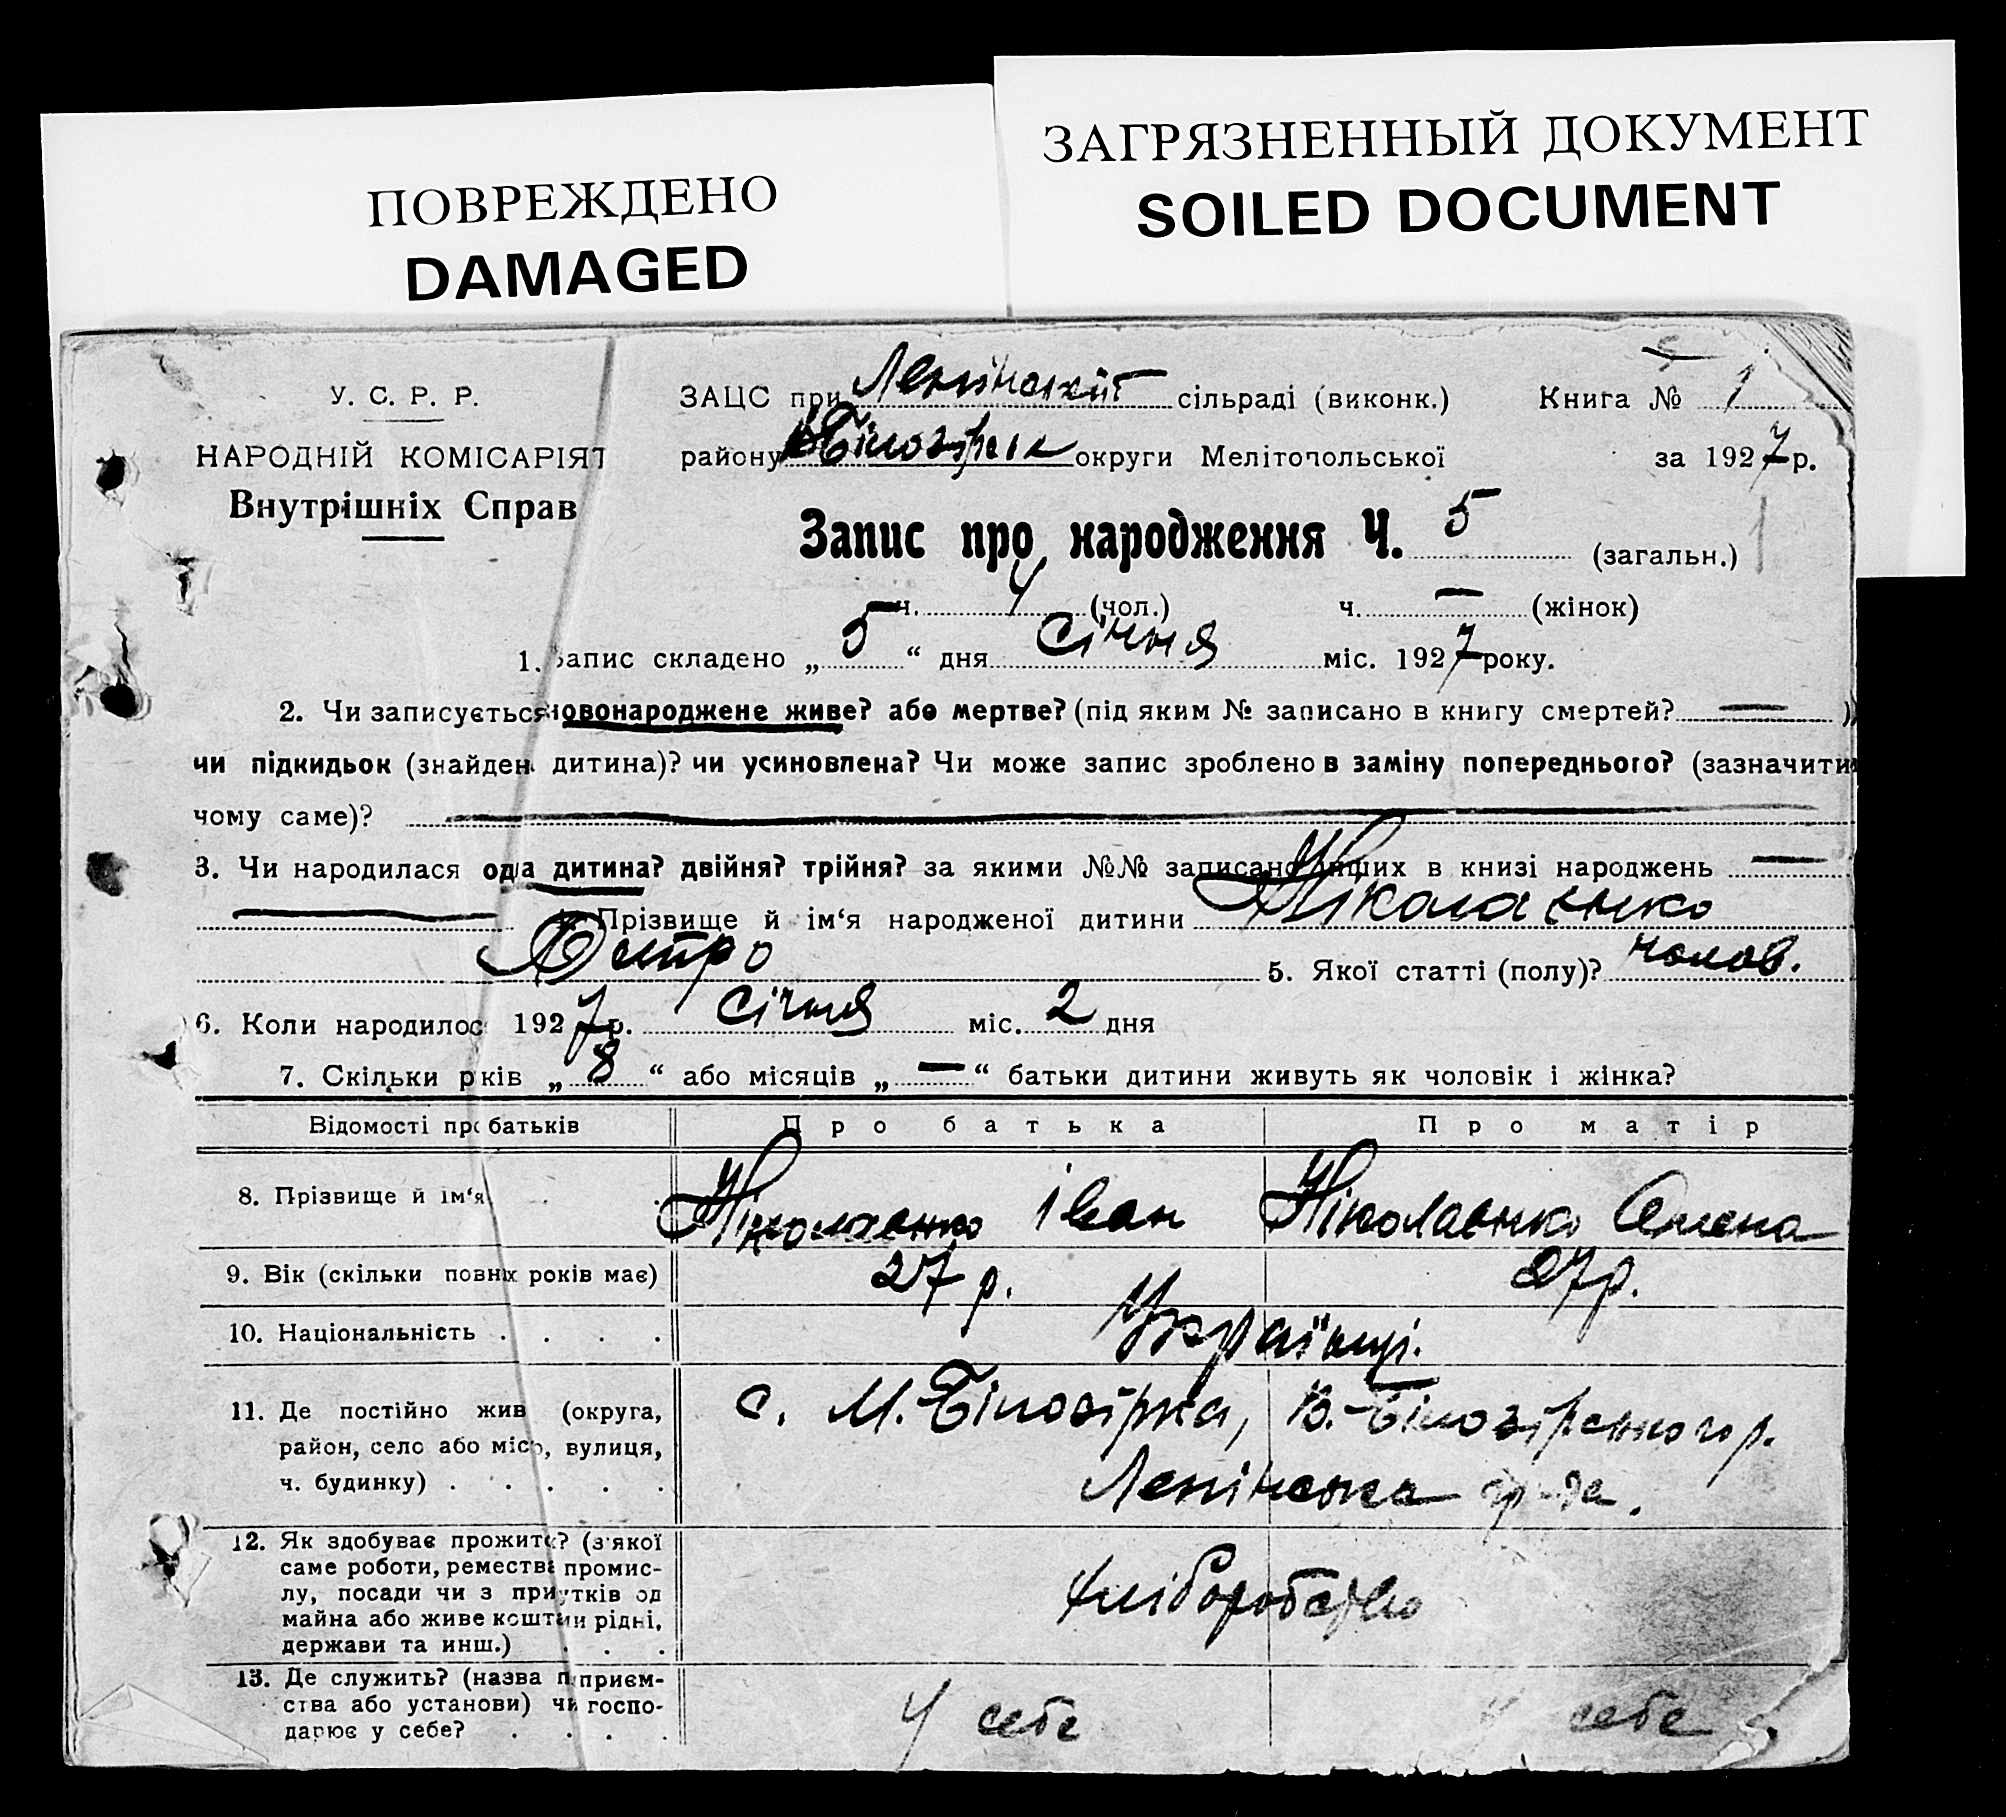 ПОВРЕЖДЕНО
DAMAGED
ЗАГРЯЗНЕННЫЙ ДОКУМЕНТ
SOILED DOCUMENT
У. С. Р. Р.
НАРОДНІЙ КОМІСАРІЯТ
Внутрішніх Справ
ЗАЦС при Ленінській сільраді (виконк.) Книга № 1
району В Білозірськ округи Мелітопольської за 1927 р.
Запис про народження Ч. 5 (загальн.)
ч. 4 (чол.) ч. — (жінок)
1. Запис складено „ 5 “ дня Січня міс. 1927 року.
2. Чи записується новонароджене живе? або мертве? (під яким № записано в книгу смертей? — )
чи підкидьок (знайден дитина)? чи усиновлена? Чи може запис зроблено в заміну попереднього? (зазначити
чому саме)? —
3. Чи народилася одна дитина? двійня? трійня? за якими №№ записано инших в книзі народжень —
— Прізвище й ім‘я народженої дитини Ніколаенко
Дмитро 5. Якої статті (полу)? чолов.
6. Коли народилос 1927 р. Січня міс. 2 дня
7. Скільки років „ 8 “ або місяців „ — “ батьки дитини живуть як чоловік і жінка?
Відомості про батьків Про батька Про матір
8. Прізвище й ім‘я Ніколаенко Іван Ніколаенко Олена
9. Вік (скільки повних років має) 27 р. 27 р.
10. Національність . . . . Українці.
11. Де постійно жив (округа, с. М.-Білозірка, В.-Білозірського р.
район, село або місто, вулиця,
ч. будинку) . . . . . Ленінська
12. Як здобуває прожиток? (з'якої
саме роботи, ремества промис-
лу, посади чи з прибутків од
майна або живе коштами рідні,
держави та инш.) . . . Хліборобство
13. Де служить? (назва підприєм-
ства або установи) чи госпо-
дарює у себе? . . . . У себе У себе